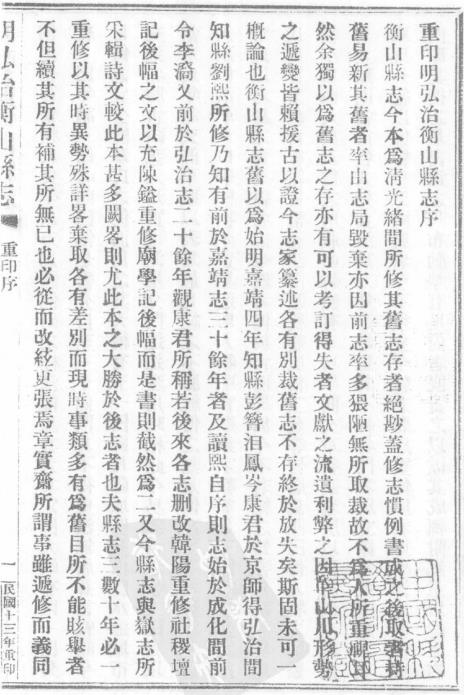 重印明弘治衡山縣志序
衡山縣志今本為淸光緒間所修其舊志存者絕尠蓋修志慣例書成之後取舊持
舊易新其舊者率由志局毀棄亦因前志率多猥陋無所取裁故不為人所重視耳
然余獨以為舊志之存亦有可以考訂得失者文獻之流遺利弊之因革山川形勢
之遞變皆賴援古以證今志家纂述各有別裁舊志不存終於放失矣斯固未可一
槪論也衡山縣志舊以為始明嘉靖四年知縣彭簪洎鳳岑康君於京師得弘治間
知縣劉熙所修乃知有前於嘉靖志三十餘年者及讀熙自序則志始於成化間前
令李㵾又前於弘治志二十餘年觀康君所稱若後來各志刪改韓陽重修社稷壇
記後幅之文以充陳鎰重修廟學記後幅而是書則截然為二又今縣志與嶽志所
采輯詩文較此本甚多闕畧則尤此本之大勝於後志者也夫縣志三數十年必一
重修以其時異勢殊詳畧棄取各有差別而現時事類多有為舊目所不能賅舉者
不但續其所有補其所無已也必從而改絃更張焉章實齋所謂事雖遞修而義同
明弘治衡山縣志
重印序
一
民國十三年重印